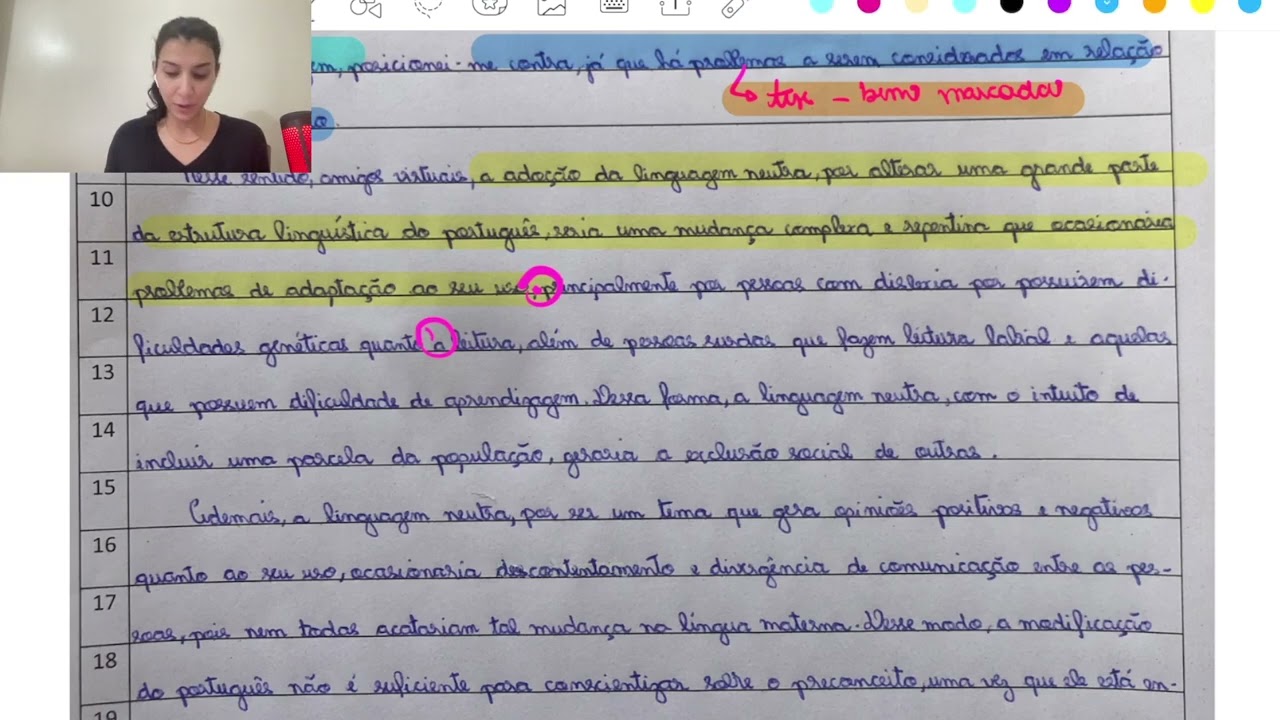 em, posicionei-me contra, já que há problemas a serem considerados em relação
tese - bem marcada
o.
Nesse sentido, amigos virtuais, a adoção da linguagem neutra, por alterar uma grande parte
10
da estrutura linguística do português, seria uma mudança complexa e repentina que ocasionária
11
problemas de adaptação ao seu uso, principalmente por pessoas com dislexia por possuírem di-
12
ficuldades genéticas quanto à leitura, além de pessoas surdas que fazem leitura labial e aquelas
13
que possuem dificuldade de aprendizagem. Dessa forma, a linguagem neutra, com o intuito de
14
incluir uma parcela da população, geraria a exclusão social de outras.
15
Ademais, a linguagem neutra, por ser um tema que gera opiniões positivas e negativas
16
quanto ao seu uso, ocasionaria descontentamento e divergência de comunicação entre as pes-
17
soas, pois nem todas acatariam tal mudança na língua materna. Desse modo, a modificação
18
do português não é suficiente para conscientizar sobre o preconceito, uma vez que ele está en-
19